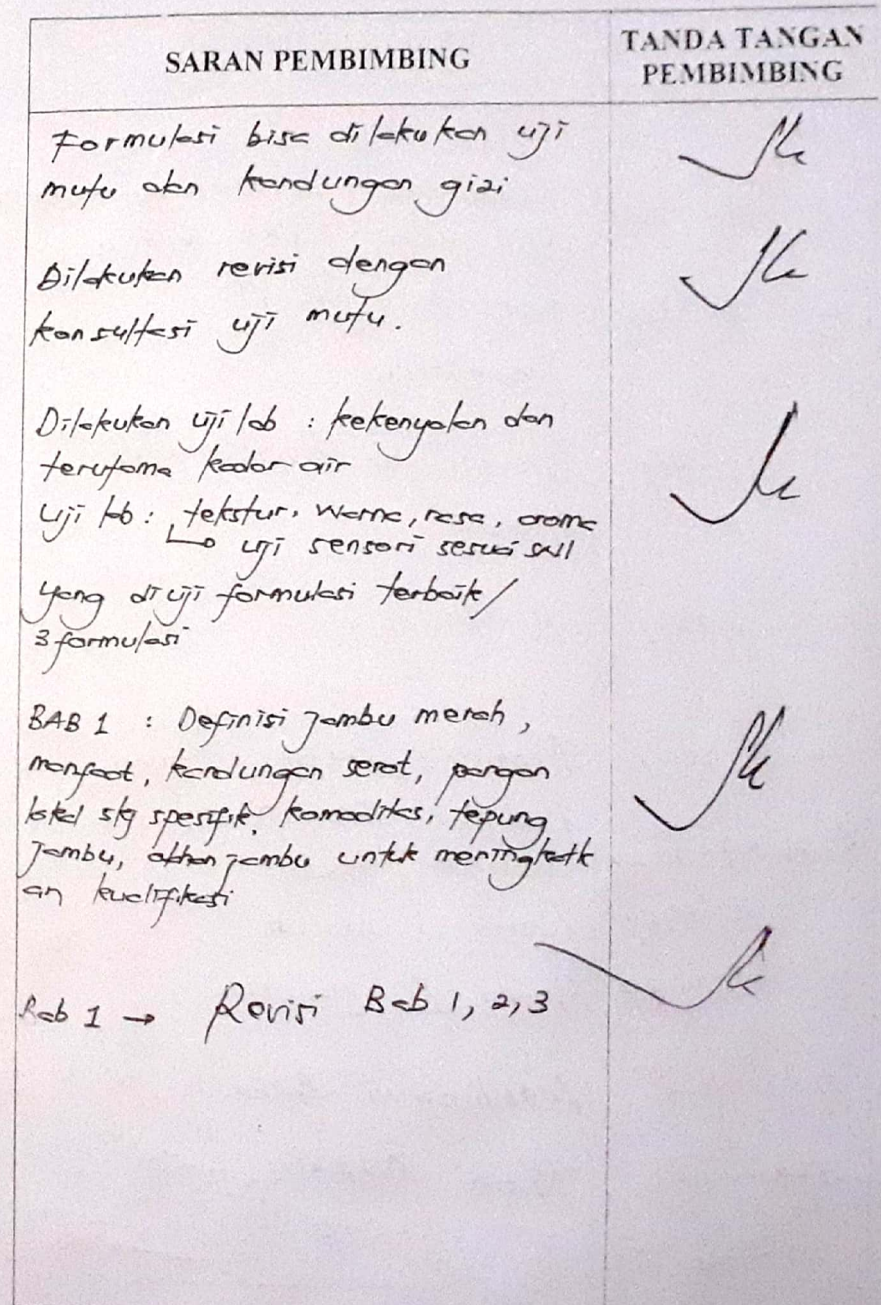 SARAN PEMBIMBING
TANDA TANGAN
PEMBIMBING
Formulasi bisa dilakukan uji
mutu dan kandungan gizi
Dilakukan revisi dengan
konsultasi uji mutu.
Dilakukan uji lab : kekenyalan dan
terutama kadar air
Uji lab : tekstur, warna, rasa, aroma
↳ uji sensori sesuai SNI
yang diuji formulasi terbaik/
3 formulasi
BAB 1 : Definisi jambu merah,
manfaat, kandungan serat, pangan
lokal yg spesifik, komoditas, tepung
jambu, jambu untuk meningkatk
an kualifikasi
Bab 1 → Revisi Bab 1, 2, 3